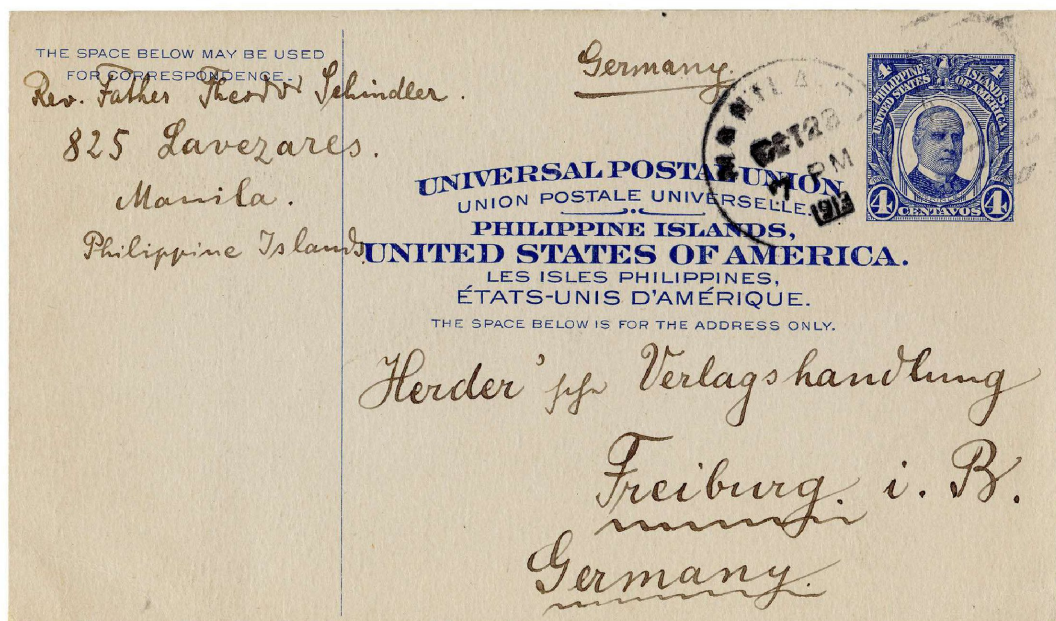 THE SPACE BELOW MAY BE USED
FOR CORRESPONDENCE.
Rev. Father Theodor Schindler.
825 Lavezares.
Manila.
Philippine Islands
Germany
MANILA
OCT 28
7 PM
1913
4 4
PHILIPPINE ISLANDS.
UNITED STATES OF AMERICA
4 CENTAVOS 4
UNIVERSAL POSTAL UNION,
UNION POSTALE UNIVERSELLE.
PHILIPPINE ISLANDS,
UNITED STATES OF AMERICA.
LES ISLES PHILIPPINES,
ÉTATS-UNIS D'AMÉRIQUE.
THE SPACE BELOW IS FOR THE ADDRESS ONLY.
Herder'sche Verlagshandlung
Freiburg. i. B.
Germany.